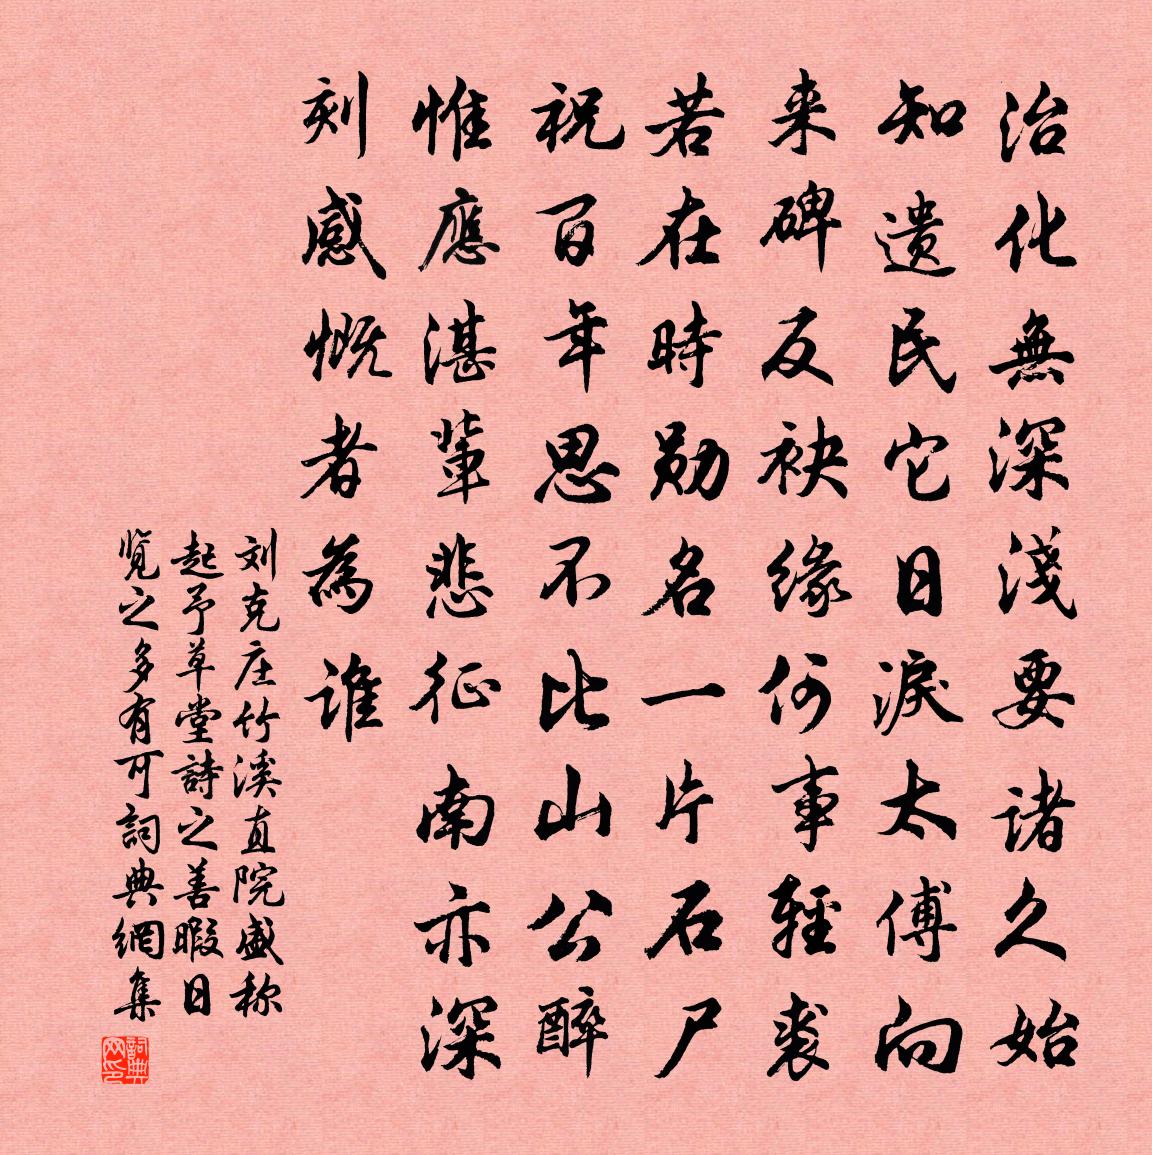 治化無深淺要諸久始
知遺民它日淚太傅向
来碑反袂緣何事輕裘
若在時勋名一片石尸
祝百年思不比山公醉
惟應湛輩悲征南亦深
刻感慨者為誰
刘克庄竹溪直院盛称
起予草堂詩之善暇日
览之多有可詞典網集
詞典网印